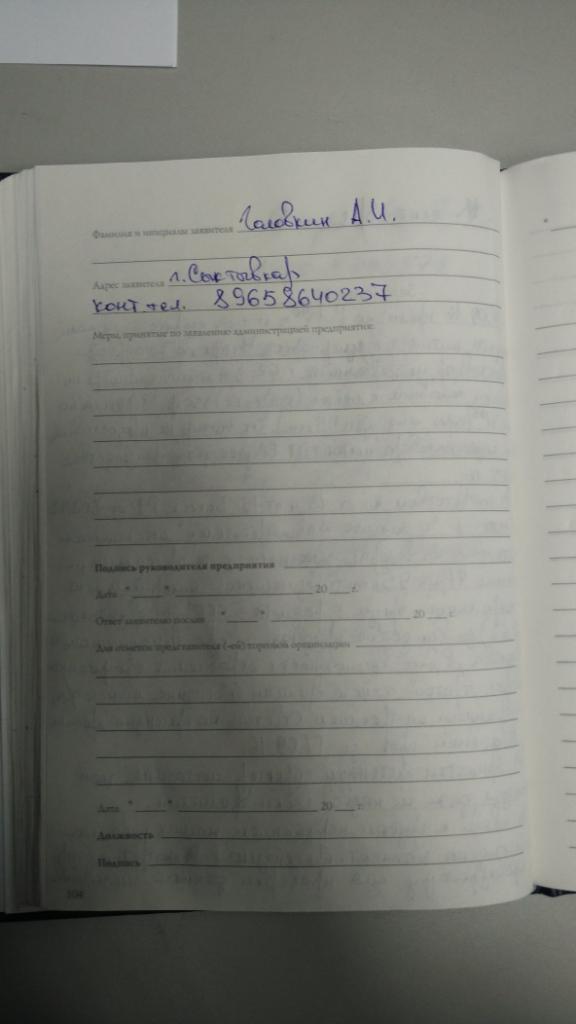 Фамилия и инициалы заявителя Головкин А.И.
Адрес заявителя г. Сыктывкар
конт. тел. 89658640237
Меры, принятые по заявлению администрацией предприятия:
Подпись руководителя предприятия
Дата "____" ____________ 20 ___ г.
Ответ заявителю послан "____" ____________ 20 ___ г.
Для отметок представителя (-ей) торговой организации
Дата "____" ____________ 20 ___ г.
Должность
Подпись
104